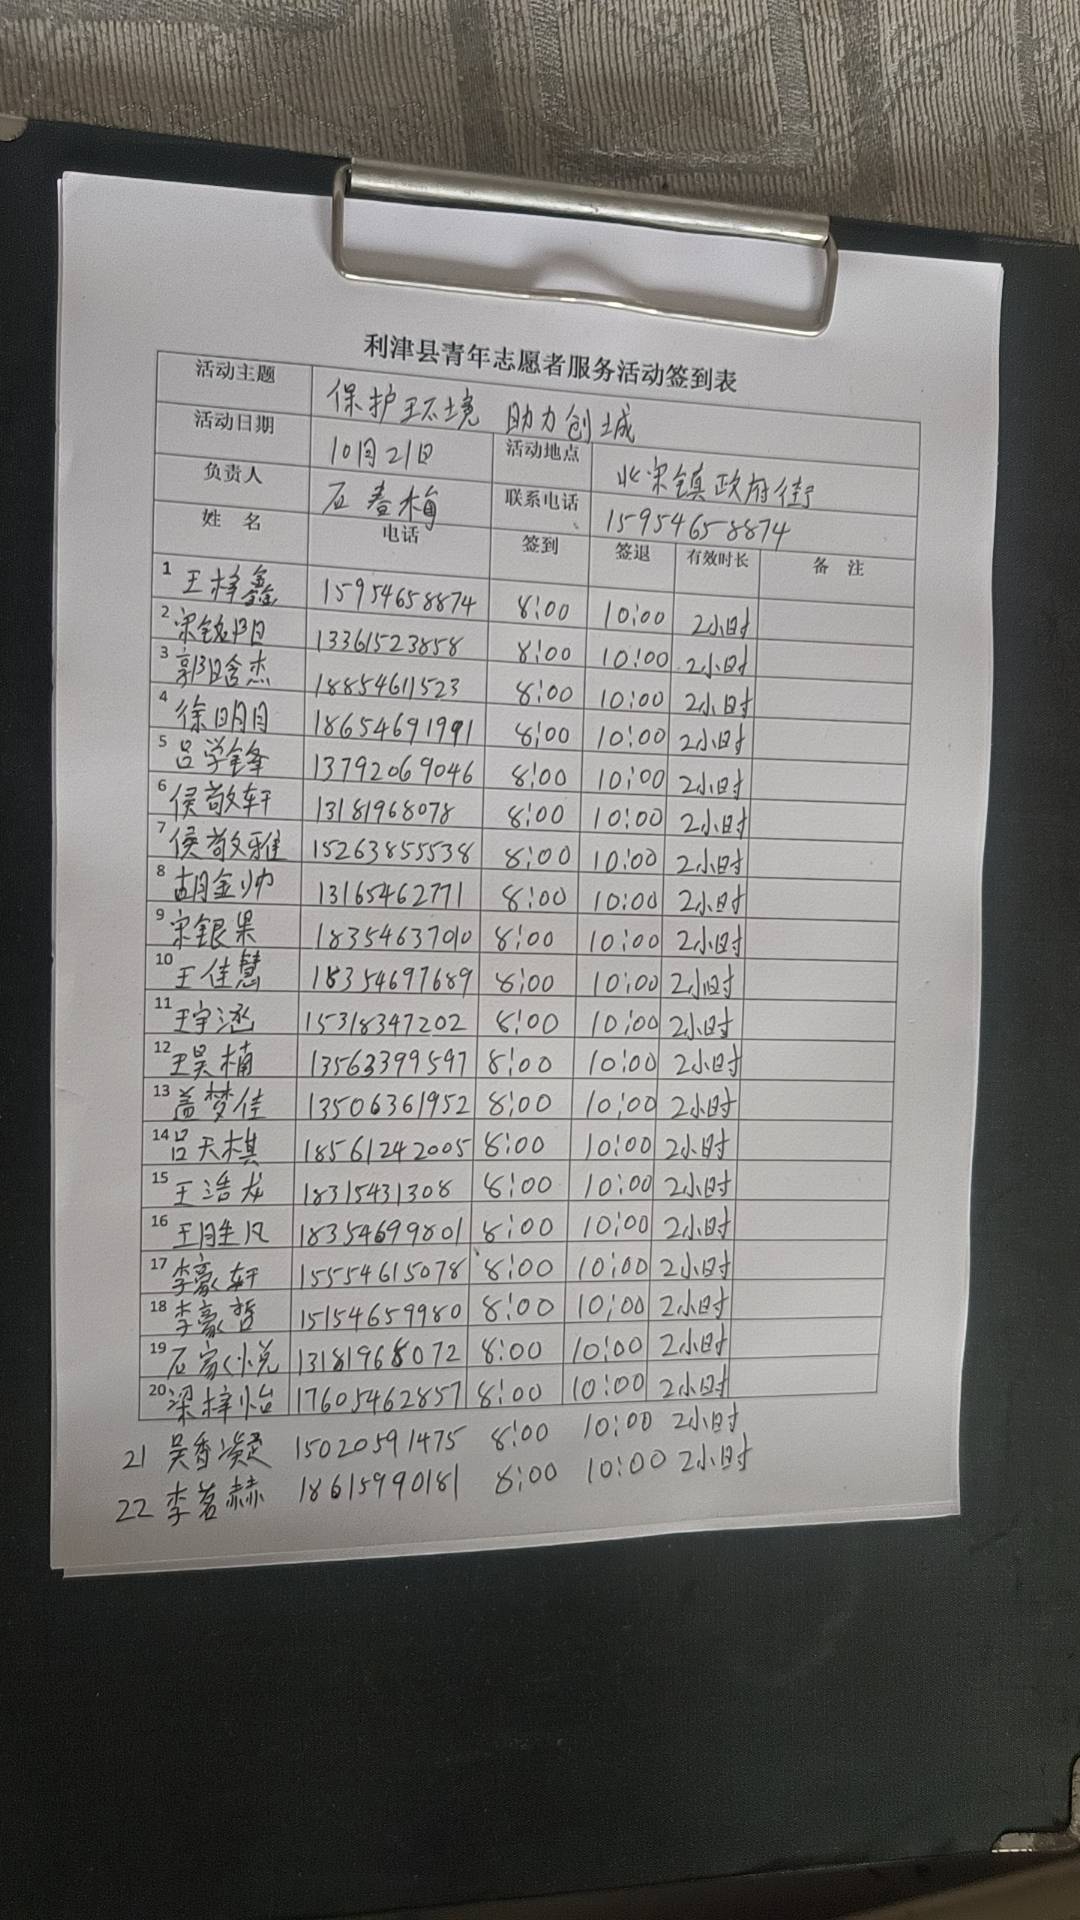 利津县青年志愿者服务活动签到表
活动主题 保护环境 助力创城
活动日期 10月21日 活动地点 北宋镇政府街
负责人 石春梅 联系电话 15954658874
姓 名 电话 签到 签退 有效时长 备 注
1 王梓鑫 15954658874 8:00 10:00 2小时
2 宋铭阳 13361523858 8:00 10:00 2小时
3 郭晗杰 18854611523 8:00 10:00 2小时
4 徐明月 18654691991 8:00 10:00 2小时
5 吕学锋 13792069046 8:00 10:00 2小时
6 侯敬轩 13181968078 8:00 10:00 2小时
7 侯敬雅 15263855538 8:00 10:00 2小时
8 胡金帅 13165462771 8:00 10:00 2小时
9 宋银果 18354637010 8:00 10:00 2小时
10 王佳慧 18354697689 8:00 10:00 2小时
11 王宇涵 15318347202 8:00 10:00 2小时
12 王昊楠 13563399597 8:00 10:00 2小时
13 盖梦佳 13506361952 8:00 10:00 2小时
14 吕天棋 18561242005 8:00 10:00 2小时
15 王浩龙 18315431308 8:00 10:00 2小时
16 王胜凡 18354699801 8:00 10:00 2小时
17 李豪轩 15554615078 8:00 10:00 2小时
18 李豪哲 15154659980 8:00 10:00 2小时
19 石家悦 13181968072 8:00 10:00 2小时
20 梁梓怡 17605462857 8:00 10:00 2小时
21 吴香凝 15020591475 8:00 10:00 2小时
22 李茗赫 18615990181 8:00 10:00 2小时